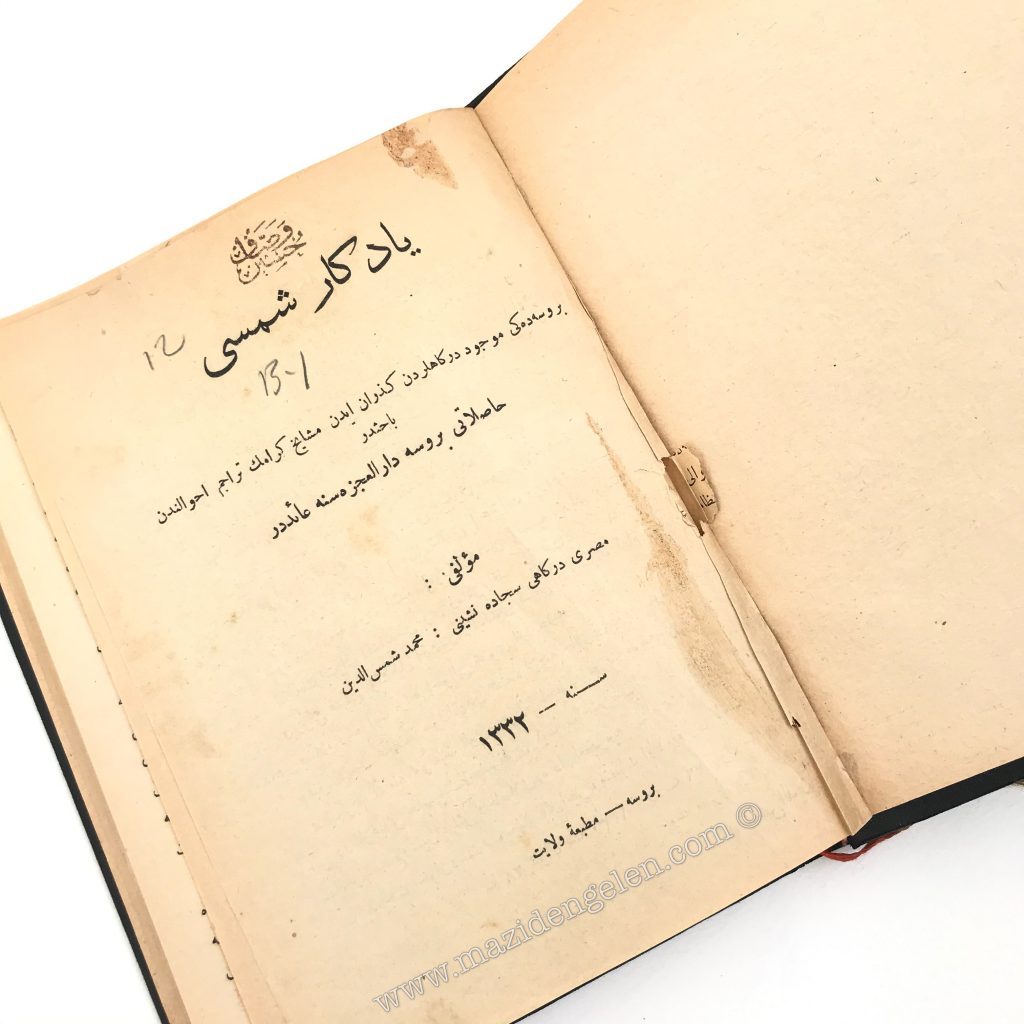 حسين وصاف
یادکار شمسی
12
13-1
بروسه‌ده‌کی موجود درکاهلردن کذران ایدن مشایخ کرامك تراجم احوالندن
باحثدر
حاصلاتی بروسه دارالعجزه‌سنه عائددر
مؤلفی :
مصری درکاهی سجاده نشینی : محمد شمس‌الدین
سنه — ١٣٣٢
بروسه — مطبعهٔ ولایت
www.mazidengelen.com ©